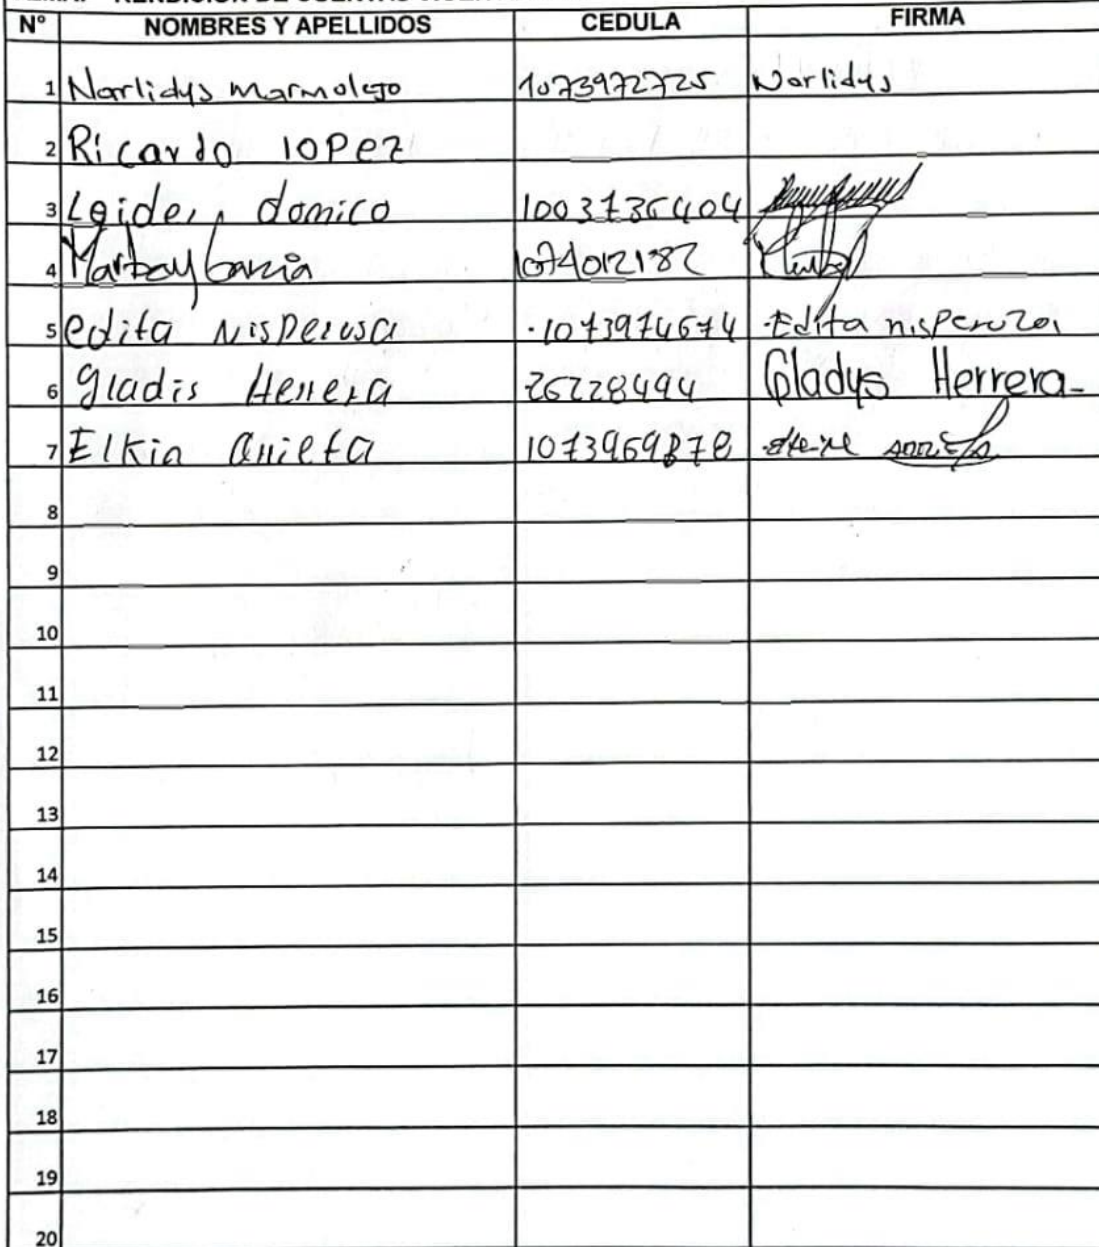 RENDICION DE CUENTAS
N° NOMBRES Y APELLIDOS CEDULA FIRMA
1 Narlidys marmolejo 1073972725 Narlidys
2 Ricardo lopez
3 Leider domico 1003735404
4 Martay Garcia 1074012182
5 edita Nisperusa 1073974674 Edita nisperuza
6 gladis Herrera 26228494 Gladys Herrera
7 Elkin Arrieta 1073969878
8
9
10
11
12
13
14
15
16
17
18
19
20